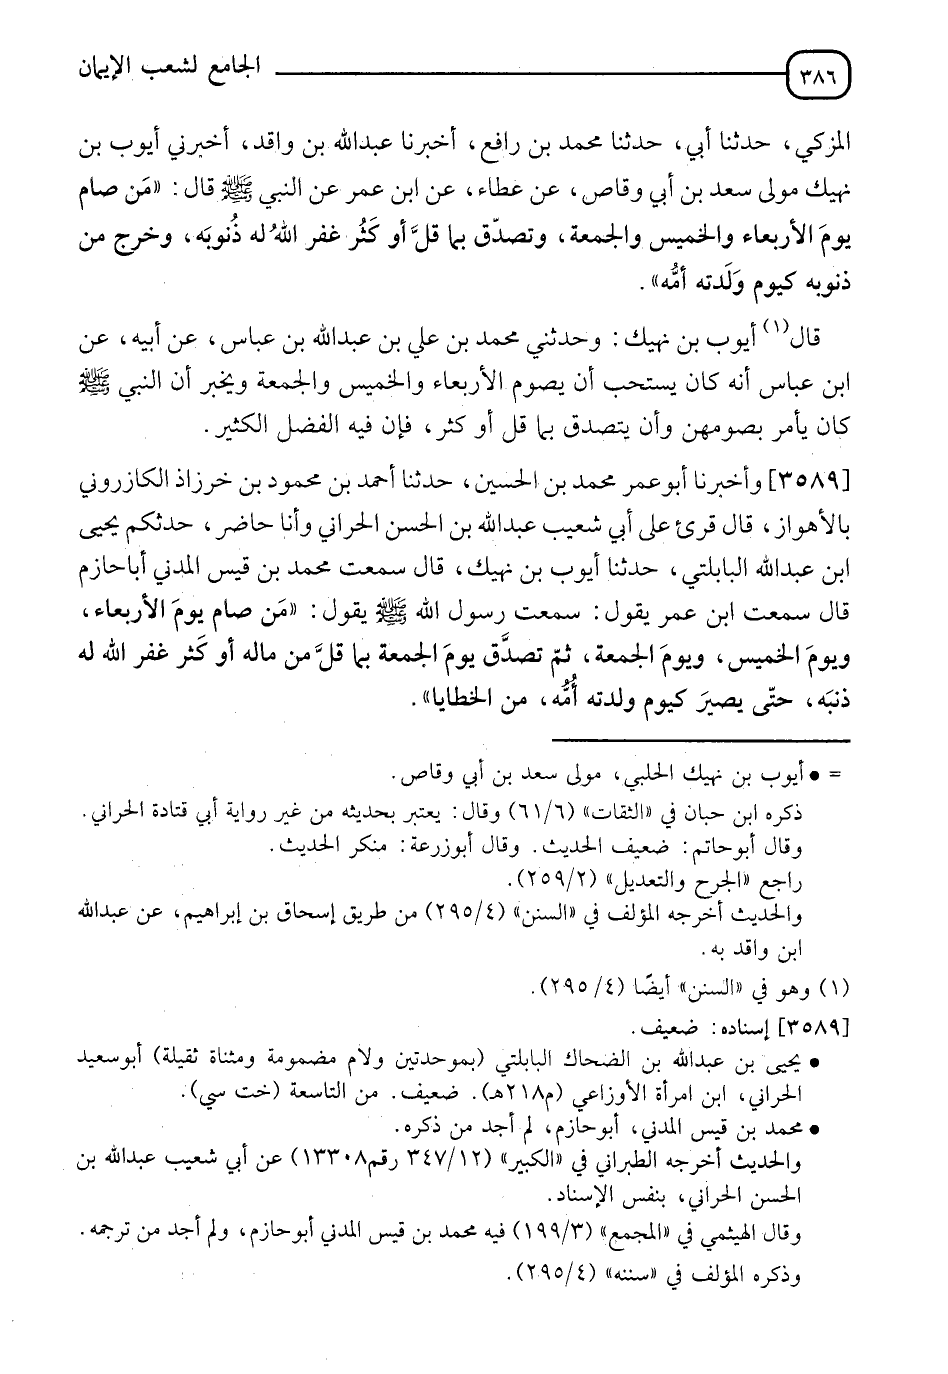 ٣٨٦ الجامع لشعب الإيمان
المزكي، حدثنا أبي، حدثنا محمد بن رافع، أخبرنا عبدالله بن واقد، أخبرني أيوب بن
نهيك مولى سعد بن أبي وقاص، عن عطاء، عن ابن عمر عن النبي ﷺ قال: «مَن صام
يومَ الأربعاء والخميس والجمعة، وتصدّق بما قلَّ أو كَثُر غفر اللهُ له ذُنوبَه، وخرج من
ذنوبه كيوم وَلَدته أمُّه».
قال(١) أيوب بن نهيك: وحدثني محمد بن علي بن عبدالله بن عباس، عن أبيه، عن
ابن عباس أنه كان يستحب أن يصوم الأربعاء والخميس والجمعة ويخبر أن النبي ﷺ
كان يأمر بصومهن وأن يتصدق بما قل أو كثر، فإن فيه الفضل الكثير.
[٣٥٨٩] وأخبرنا أبوعمر محمد بن الحسين، حدثنا أحمد بن محمود بن خرزاذ الكازروني
بالأهواز، قال قرئ على أبي شعيب عبدالله بن الحسن الحراني وأنا حاضر، حدثكم يحيى
ابن عبدالله البابلتي، حدثنا أيوب بن نهيك، قال سمعت محمد بن قيس المدني أباحازم
قال سمعت ابن عمر يقول: سمعت رسول الله ﷺ يقول: «مَن صام يومَ الأربعاء،
ويومَ الخميس، ويومَ الجمعة، ثمّ تصدَّق يومَ الجمعة بما قلَّ من ماله أو كَثر غفر الله له
ذنبَه، حتّى يصيرَ كيوم ولدته أُمُّه، من الخطايا».
= • أيوب بن نهيك الحلبي، مولى سعد بن أبي وقاص.
ذكره ابن حبان في «الثقات» (٦١/٦) وقال: يعتبر بحديثه من غير رواية أبي قتادة الحراني.
وقال أبوحاتم: ضعيف الحديث. وقال أبوزرعة: منكر الحديث.
راجع «الجرح والتعديل» (٢٥٩/٢).
والحديث أخرجه المؤلف في «السنن» (٢٩٥/٤) من طريق إسحاق بن إبراهيم، عن عبدالله
ابن واقد به.
(١) وهو في «السنن» أيضًا (٢٩٥/٤).
[٣٥٨٩] إسناده: ضعيف.
• يحيى بن عبدالله بن الضحاك البابلتي (بموحدتين ولام مضمومة ومثناة ثقيلة) أبوسعيد
الحراني، ابن امرأة الأوزاعي (م٢١٨هـ). ضعيف. من التاسعة (خت سي).
• محمد بن قيس المدني، أبوحازم، لم أجد من ذكره.
والحديث أخرجه الطبراني في «الكبير» (٣٤٧/١٢ رقم١٣٣٠٨) عن أبي شعيب عبدالله بن
الحسن الحراني، بنفس الإسناد.
وقال الهيثمي في «المجمع» (١٩٩/٣) فيه محمد بن قيس المدني أبوحازم، ولم أجد من ترجمه.
وذكره المؤلف في «سننه» (٢٩٥/٤).